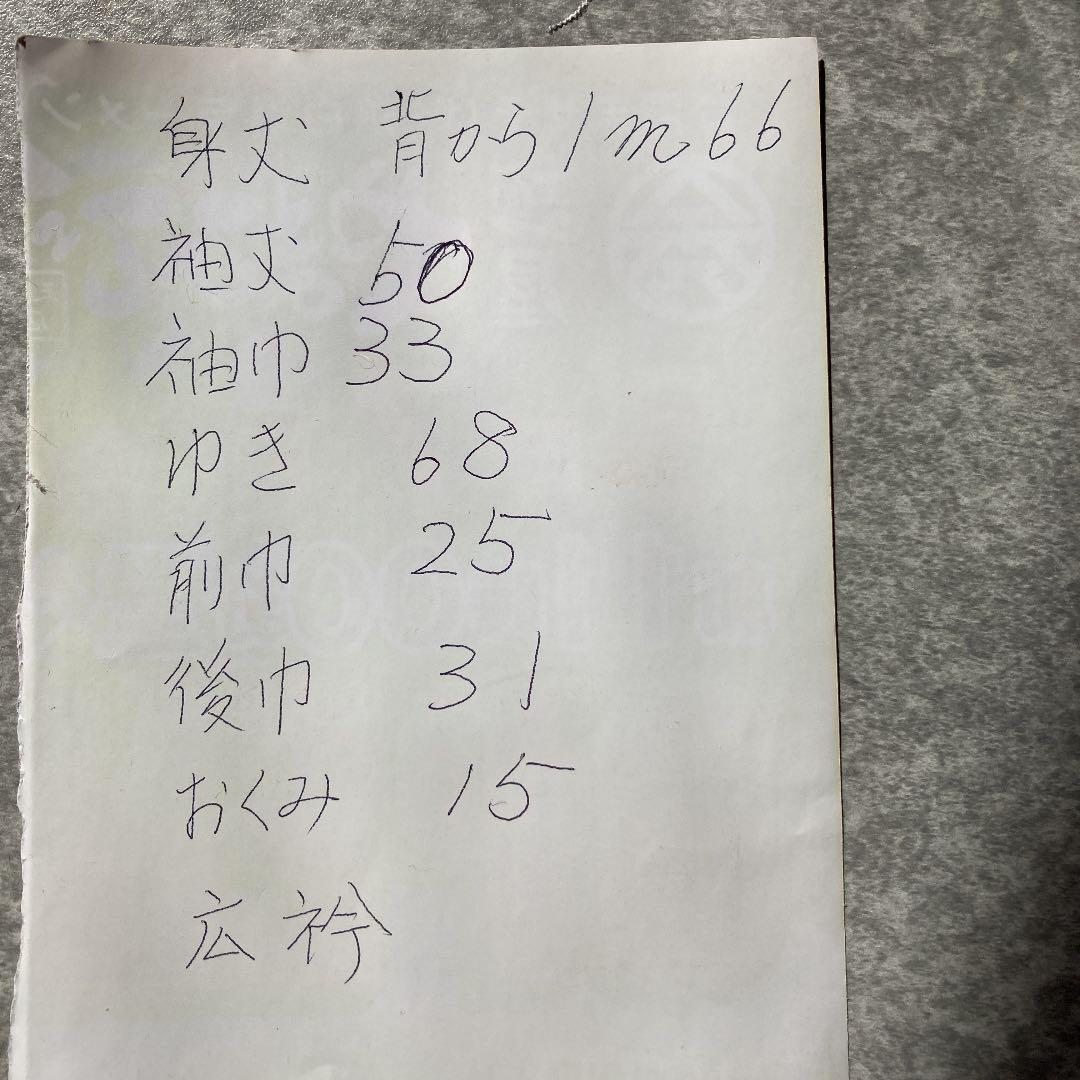 身丈 背から1m66
袖丈 50
袖巾 33
ゆき 68
前巾 25
後巾 31
おくみ 15
広衿